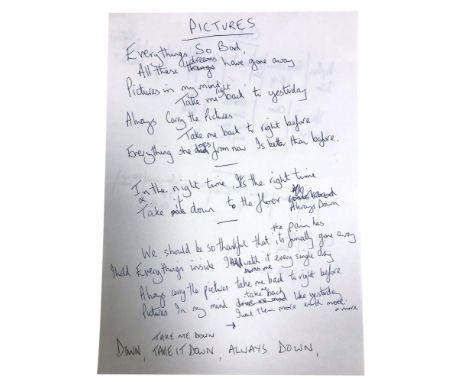 PICTURES
Everythings So Bad,
All these dreams have gone away
Pictures in my mind
Take me back to yesterday
Always Carry the Pictures
Take me back to right before
Everything she from now Is better than before.
In the night time, It's the right time
Take it down to the floor
Always Down
We should be so thankful that the pain has finally gone away
I hold Everythings inside I walk it every single day
Always carry the pictures take me back to right before
Pictures In my mind take me back like yesterday
them more and more
TAKE ME DOWN
DOWN, TAKE IT DOWN, ALWAYS DOWN,